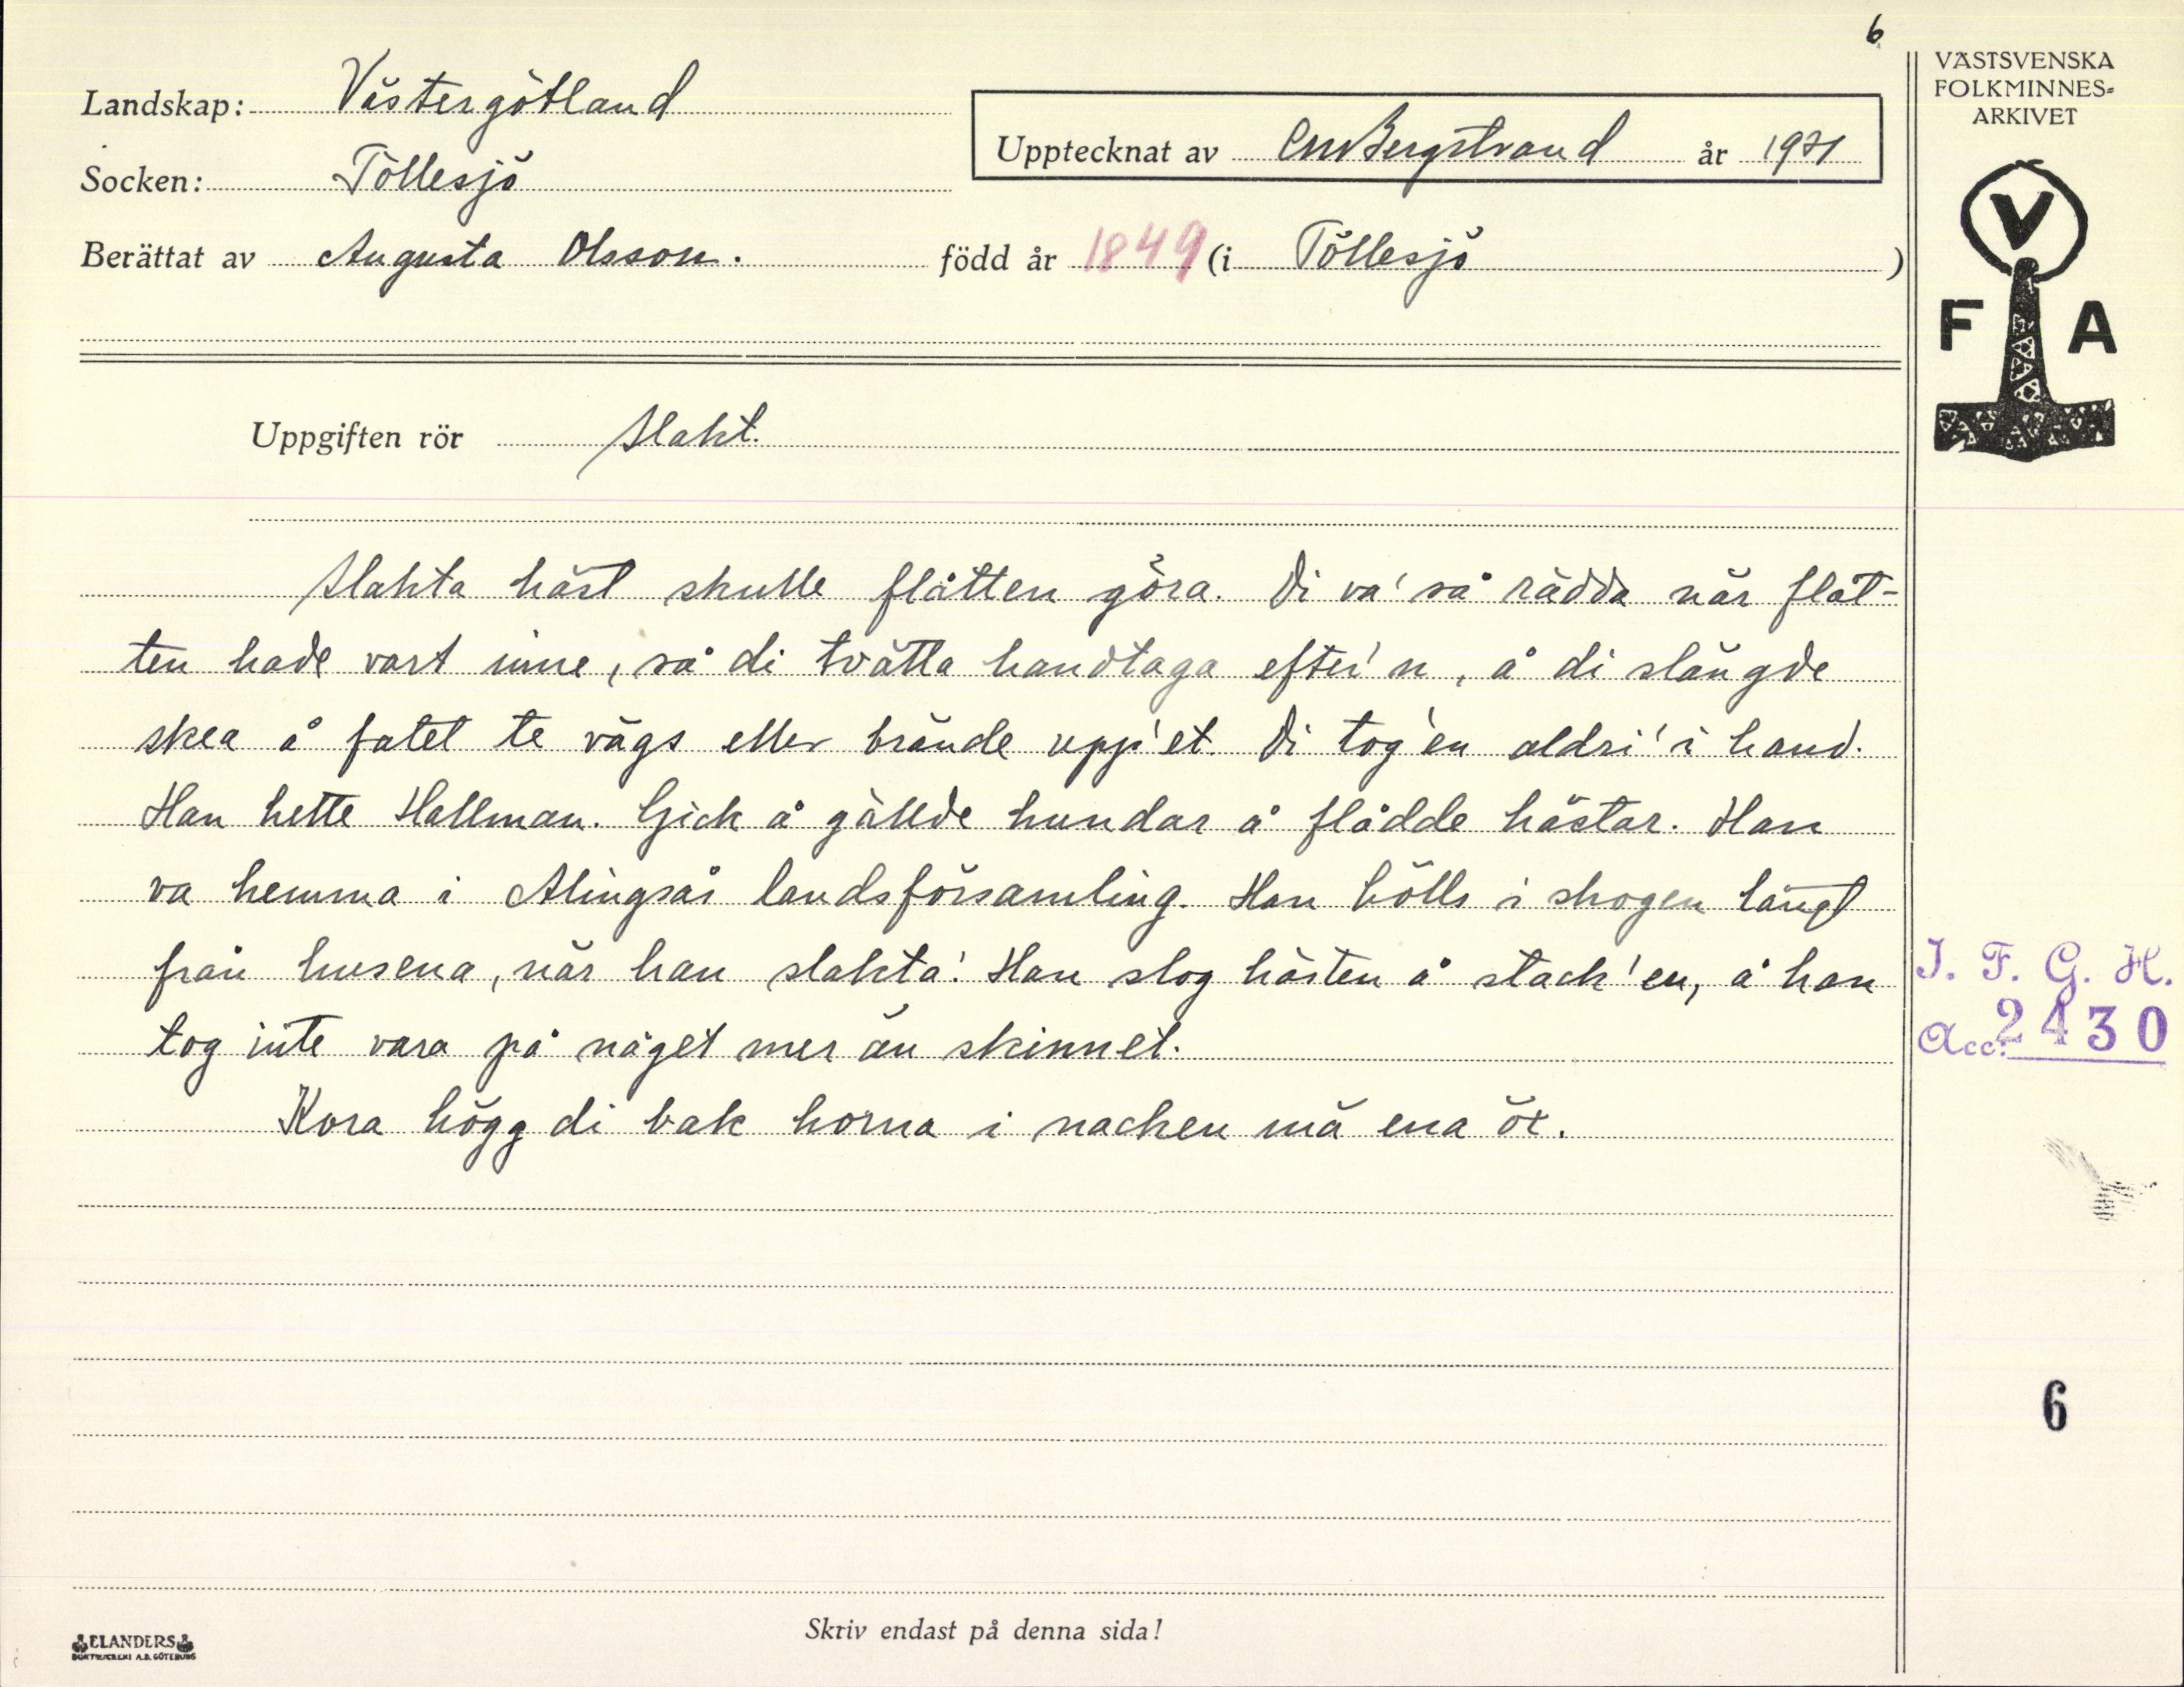 6
VÄSTSVENSKA
FOLKMINNES-
ARKIVET
Landskap: Västergötland
Upptecknat av CMBergstrand år 1931
Socken: Töllesjö
Berättat av Augusta Olsson. född år 1849 (i Töllesjö )
V
F A
Uppgiften rör Slakt.
Slakta häst skulle flåtten göra. Di va' så rädda när flåt-
ten hade vart inne, så di tvätta handtaga efter'n, å di slängde
skea å fatet te vägs eller brände upp'et. Di tog'en aldri' i hand.
Han hette Hallman. Gick å gällde hundar å flådde hästar. Han
va hemma i Alingsås landsförsamling. Han hölls i skogen långt
från husena, när han slakta'. Han slog hästen å stack'en, å han
tog inte vara på något mer än skinnet.
Kora högg di bak horna i nacken mä ena öx.
I. F. G. H.
Acc: 2430
6
Skriv endast på denna sida!
ELANDERS
BOKTRYCKERI A.B. GÖTEBORG